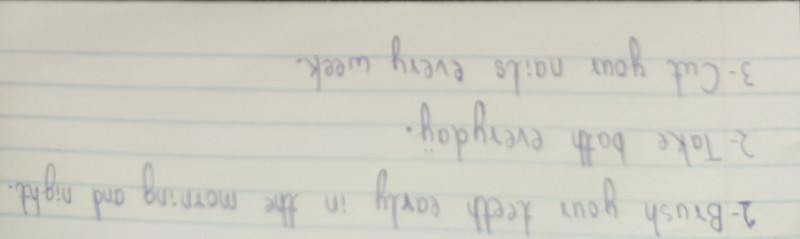 1-Brush your teeth early in the morning and night.
2-Take bath everyday.
3-Cut your nails every week.